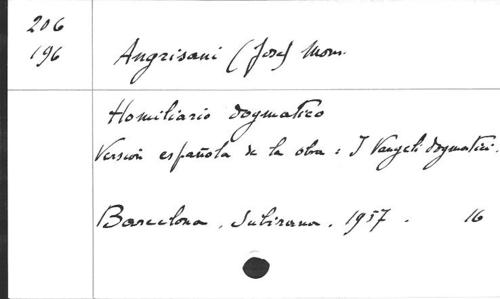 206
196
Angrisani (José) Mons.
Homiliario dogmatico
Versión española de la obra : I Vangeli dogmatici.
Barcelona . Subirana . 1957 . 16